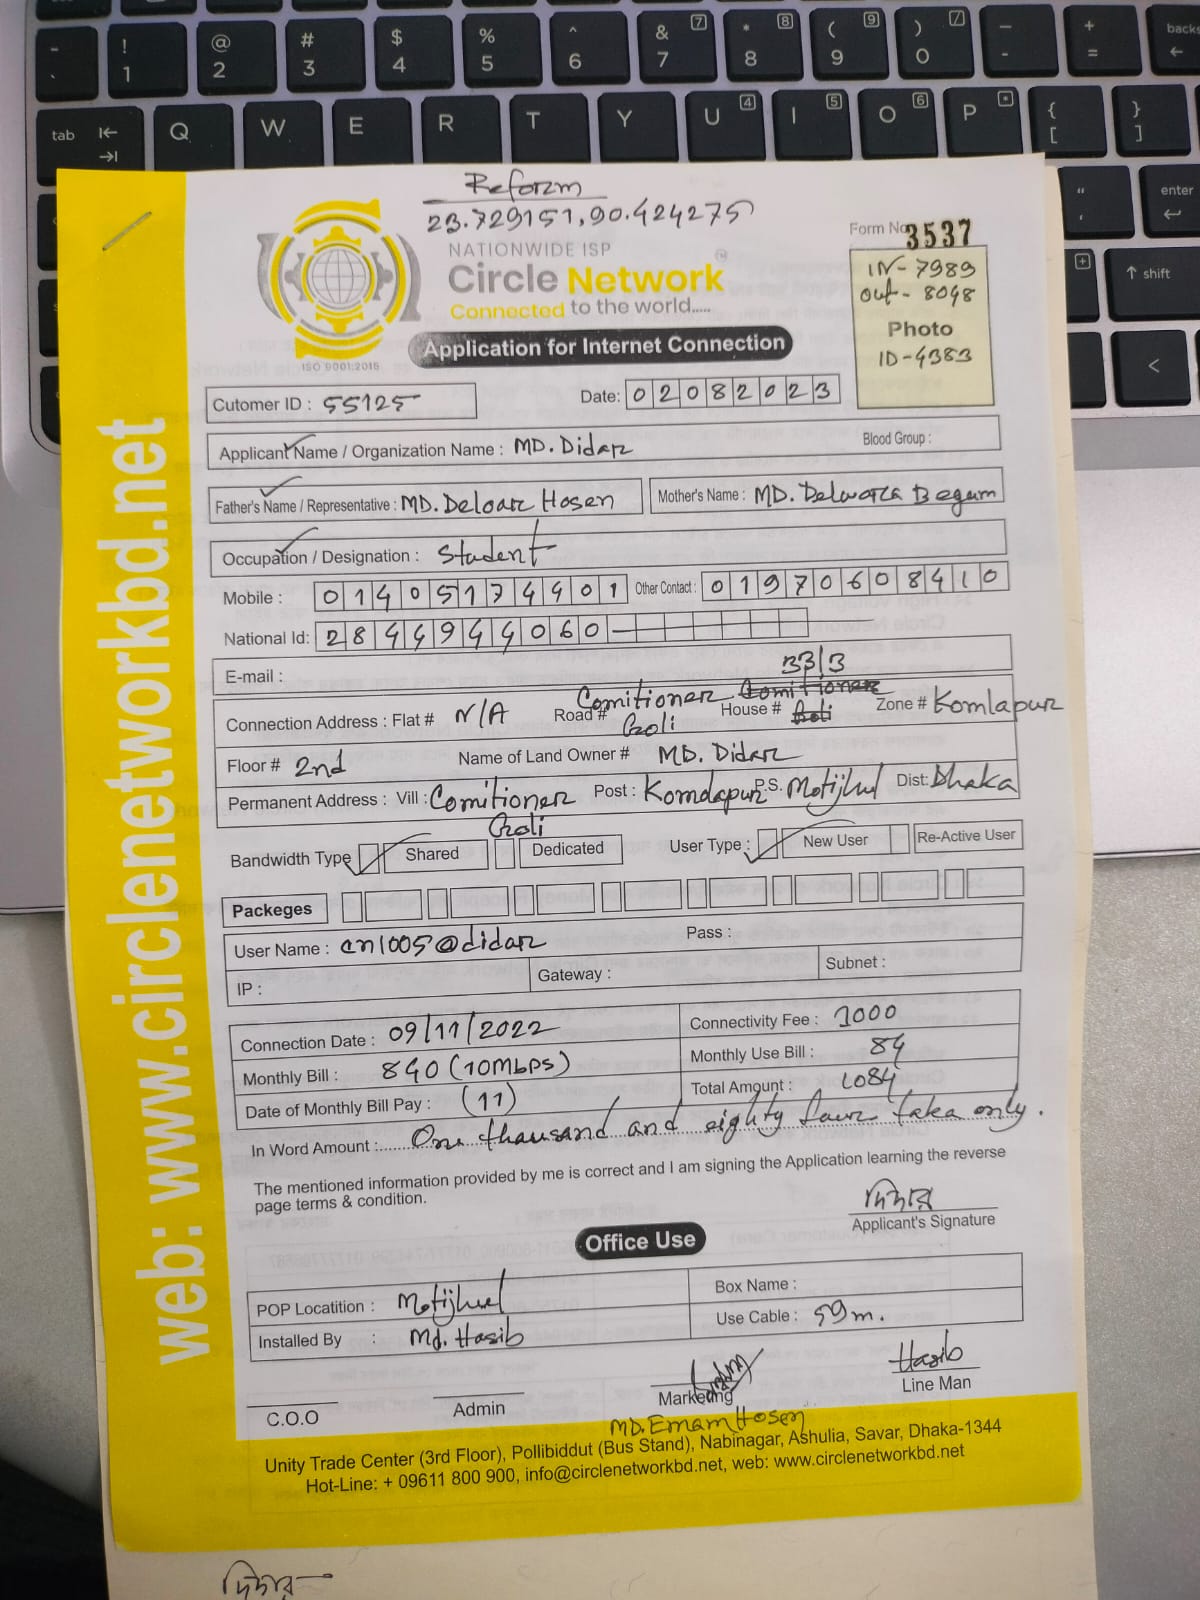 - ! 1 @ 2 # 3 $ 4 % 5 ^ 6 & 7 7 * 8 8 ( 9 9 ) 0 / - - + = backs
tab Q W E R T Y U 4 I 5 O 6 P * { [ } ]
" ' enter
+ shift
<
Reform
23.729151,90.424275
NATIONWIDE ISP
Circle Network
Connected to the world.....
ISO 9001:2015
Form No 3537
IN- 7989
Out- 8048
Photo
ID-4383
Application for Internet Connection
Cutomer ID : 55125
Date: 02082023
Applicant Name / Organization Name : MD. Didar
Blood Group :
Father's Name / Representative : MD. Deloar Hosen
Mother's Name : MD. Delwara Begum
Occupation / Designation : Student
Mobile : 01405174401 Other Contact : 01970608410
National Id: 2844944060
E-mail :
Connection Address : Flat # N/A Road # Comitioner Goli House # 33/3 Zone # Komlapur
Floor # 2nd Name of Land Owner # MD. Didar
Permanent Address : Vill : Comitioner Goli Post : Komlapur P.S. Motijhil Dist: Dhaka
Bandwidth Type Shared Dedicated User Type : New User Re-Active User
Packeges
User Name : cn1005@didar Pass :
IP : Gateway : Subnet :
Connection Date : 09/11/2022 Connectivity Fee : 1000
Monthly Bill : 840 (10Mbps) Monthly Use Bill : 84
Date of Monthly Bill Pay : (11) Total Amount : 1084
In Word Amount :...... One thousand and eighty four taka only.
The mentioned information provided by me is correct and I am signing the Application learning the reverse
page terms & condition.
দিদার
Applicant's Signature
Office Use
POP Locatition : Motijheel Box Name :
Installed By : Md. Hasib Use Cable : 59m.
C.O.O Admin Marketing Hasib Line Man
MD. Emam Hosen
Unity Trade Center (3rd Floor), Pollibiddut (Bus Stand), Nabinagar, Ashulia, Savar, Dhaka-1344
Hot-Line: + 09611 800 900, info@circlenetworkbd.net, web: www.circlenetworkbd.net
web: www.circlenetworkbd.net
দিদার